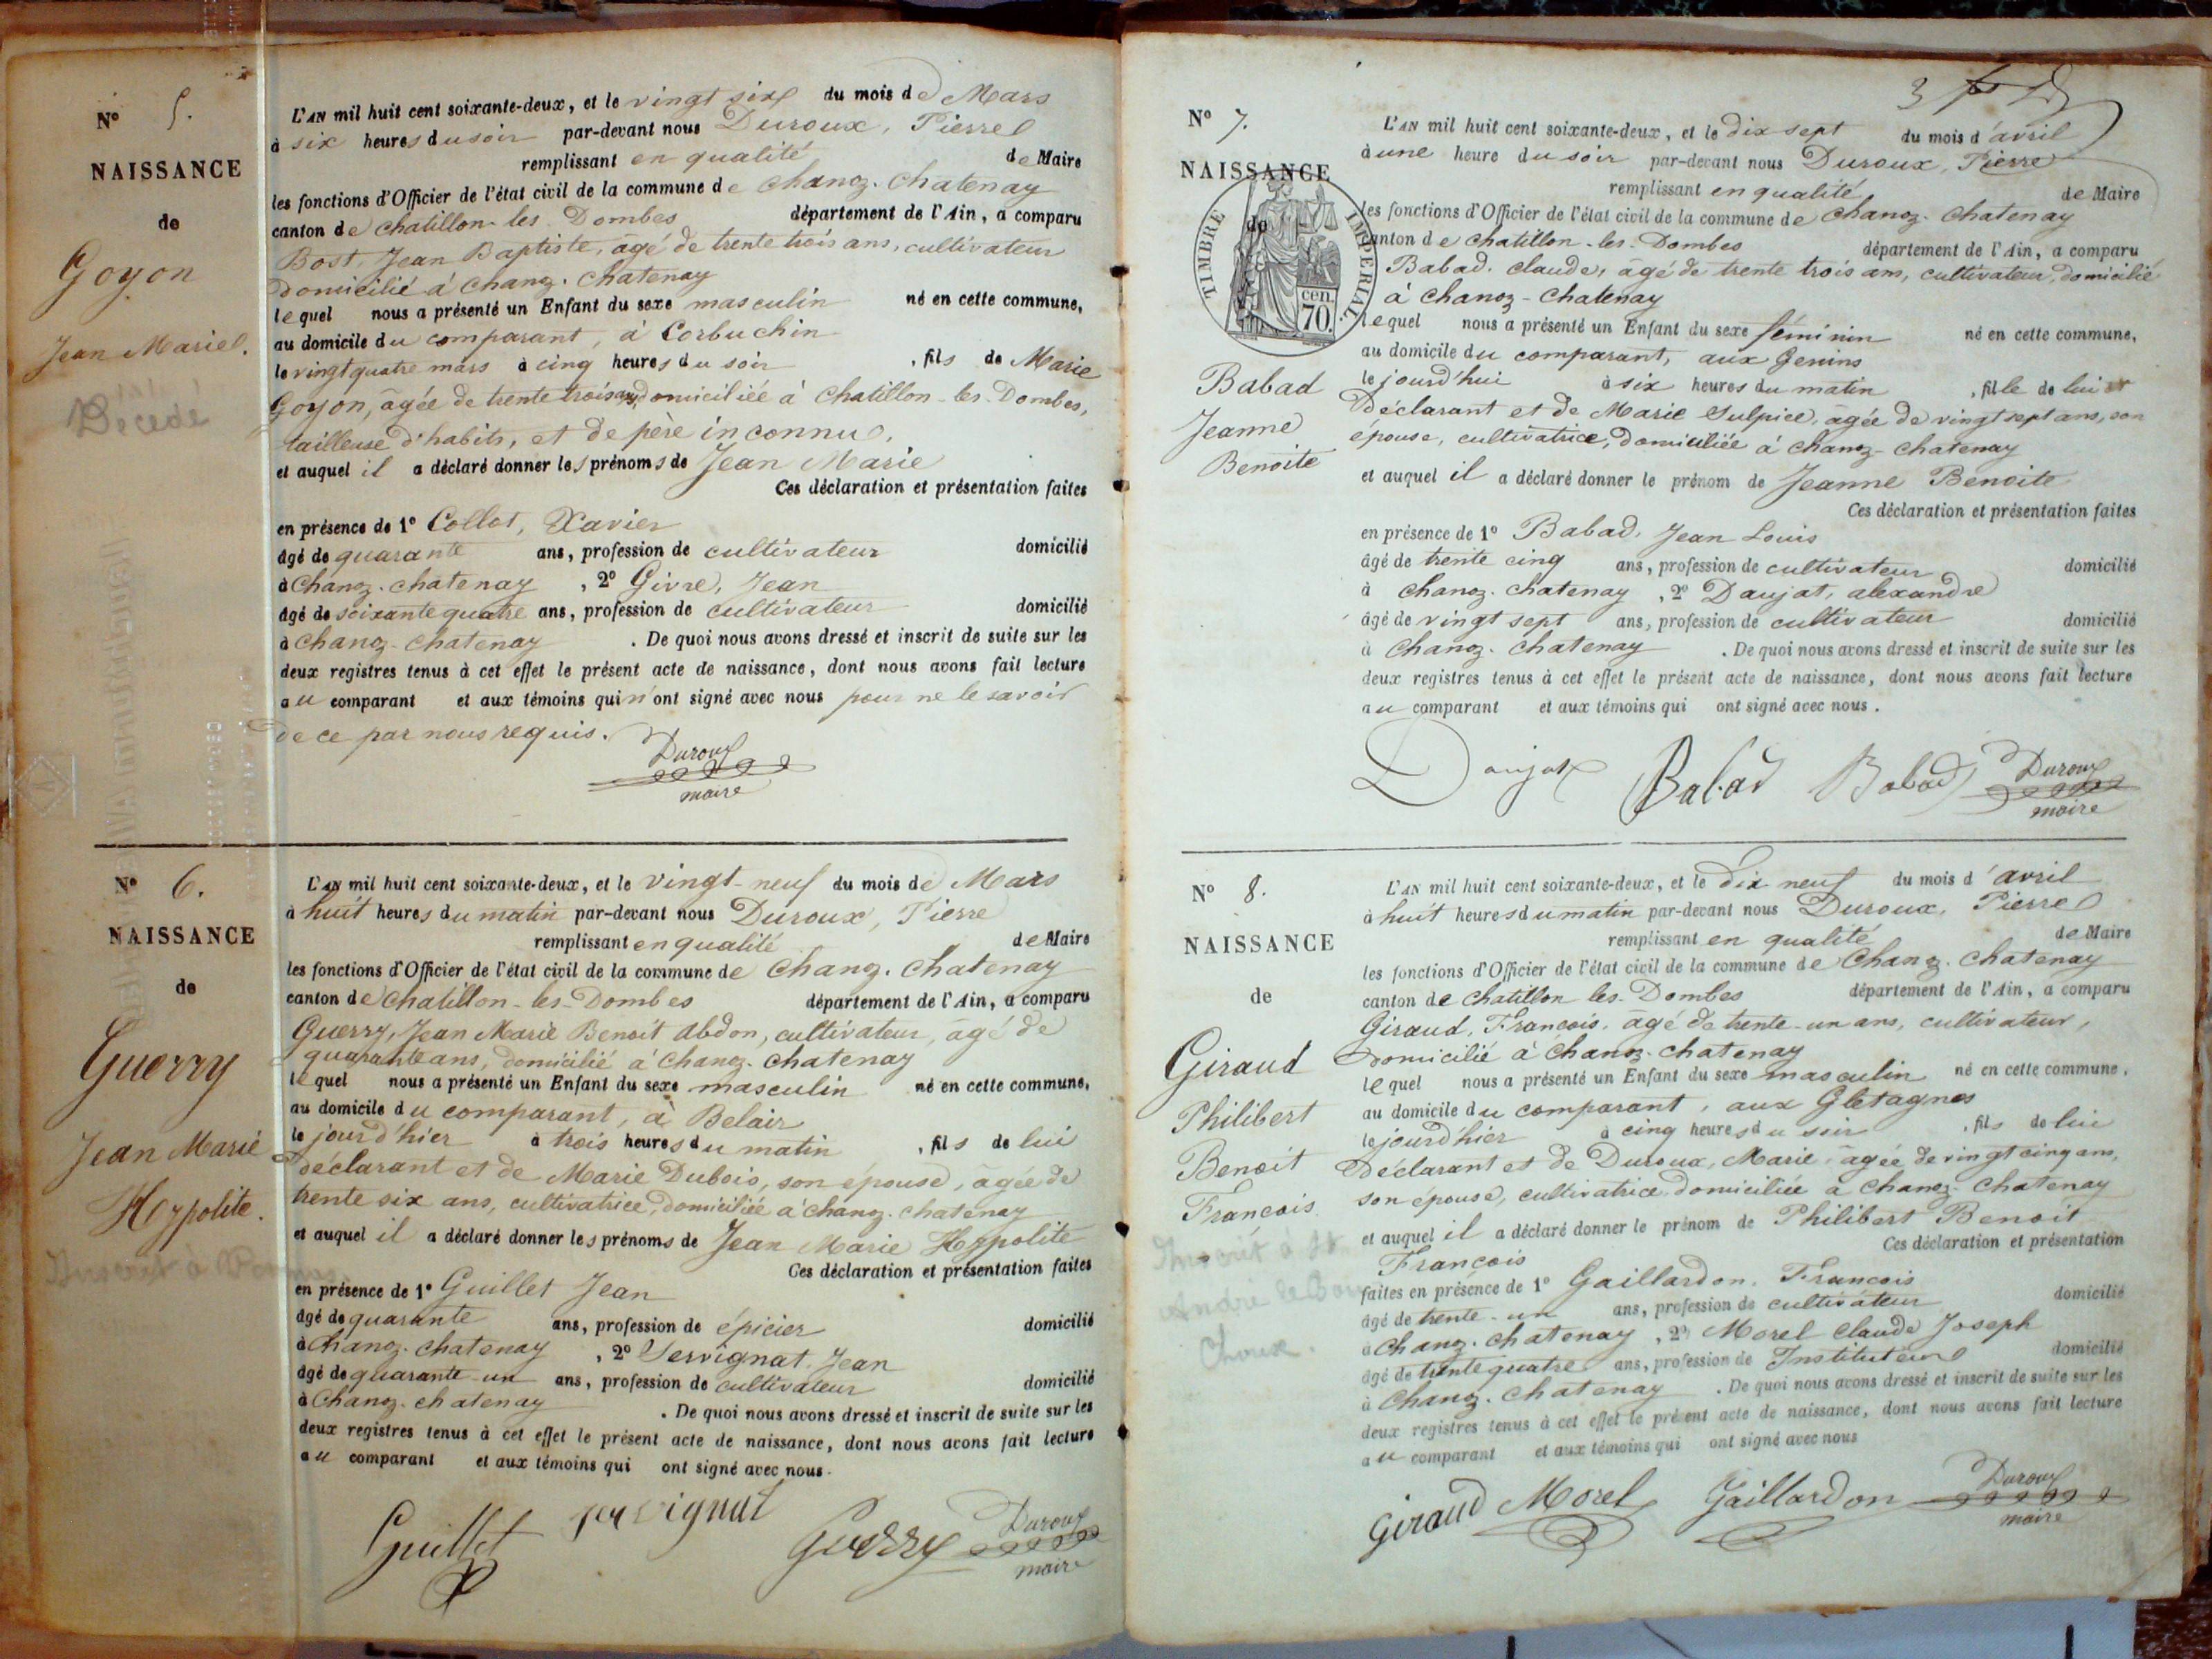 N° 5.
NAISSANCE
de
Goyon
Jean Marie.
Décédé
L'AN mil huit cent soixante-deux, et le vingt six du mois de Mars
à six heures du soir par-devant nous Duroux, Pierre
remplissant en qualité de Maire
les fonctions d'Officier de l'état civil de la commune de Chanoz-Chatenay
canton de Chatillon-les-Dombes département de l'Ain, a comparu
Bost, Jean Baptiste, âgé de trente trois ans, cultivateur
domicilié à Chanoz-Chatenay
lequel nous a présenté un Enfant du sexe masculin né en cette commune,
au domicile du comparant, à Corbuchin
le vingt quatre mars à cinq heures du soir, fils de Marie
Goyon, âgée de trente trois ans, domiciliée à Chatillon-les-Dombes,
tailleuse d'habits, et de père inconnu,
et auquel il a déclaré donner les prénoms de Jean Marie
Ces déclaration et présentation faites
en présence de 1° Collot, Xavier
âgé de quarante ans, profession de cultivateur domicilié
à Chanoz-Chatenay, 2° Givre, Jean
âgé de soixante quatre ans, profession de cultivateur domicilié
à Chanoz-Chatenay. De quoi nous avons dressé et inscrit de suite sur les
deux registres tenus à cet effet le présent acte de naissance, dont nous avons fait lecture
au comparant et aux témoins qui n'ont signé avec nous pour ne le savoir
de ce par nous requis.
Duroux
maire
N° 6.
NAISSANCE
de
Guerry
Jean Marie
Hyppolite.
L'AN mil huit cent soixante-deux, et le vingt-neuf du mois de Mars
à huit heures du matin par-devant nous Duroux, Pierre
remplissant en qualité de Maire
les fonctions d'Officier de l'état civil de la commune de Chanoz-Chatenay
canton de Chatillon-les-Dombes département de l'Ain, a comparu
Guerry, Jean Marie Benoit Abdon, cultivateur, âgé de
quarante ans, domicilié à Chanoz-Chatenay
lequel nous a présenté un Enfant du sexe masculin né en cette commune,
au domicile du comparant, à Belair
le jour d'hier à trois heures du matin, fils de lui
déclarant et de Marie Dubois, son épouse, âgée de
trente six ans, cultivatrice, domiciliée à Chanoz-Chatenay
et auquel il a déclaré donner les prénoms de Jean Marie Hyppolite
Ces déclaration et présentation faites
en présence de 1° Guillet Jean
âgé de quarante ans, profession de épicier domicilié
à Chanoz-Chatenay, 2° Servignat, Jean
âgé de quarante-un ans, profession de cultivateur domicilié
à Chanoz-Chatenay. De quoi nous avons dressé et inscrit de suite sur les
deux registres tenus à cet effet le présent acte de naissance, dont nous avons fait lecture
au comparant et aux témoins qui ont signé avec nous.
Guillet Servignat Guerry Duroux
maire
N° 7.
NAISSANCE
de
TIMBRE IMPERIAL
70 cen.
Babad
Jeanne
Benoite
L'AN mil huit cent soixante-deux, et le dix sept du mois d'avril
à une heure du soir par-devant nous Duroux, Pierre
remplissant en qualité de Maire
les fonctions d'Officier de l'état civil de la commune de Chanoz-Chatenay
canton de Chatillon-les-Dombes département de l'Ain, a comparu
Babad, Claude, âgé de trente trois ans, cultivateur, domicilié
à Chanoz-Chatenay
lequel nous a présenté un Enfant du sexe féminin né en cette commune,
au domicile du comparant, aux Genins
le jourd'hui à six heures du matin, fille de lui
déclarant et de Marie Sulpice, âgée de vingt sept ans, son
épouse, cultivatrice, domiciliée à Chanoz-Chatenay
et auquel il a déclaré donner le prénom de Jeanne Benoite
Ces déclaration et présentation faites
en présence de 1° Babad, Jean Louis
âgé de trente cinq ans, profession de cultivateur domicilié
à Chanoz-Chatenay, 2° Daujat, alexandre
âgé de vingt sept ans, profession de cultivateur domicilié
à Chanoz-Chatenay. De quoi nous avons dressé et inscrit de suite sur les
deux registres tenus à cet effet le présent acte de naissance, dont nous avons fait lecture
au comparant et aux témoins qui ont signé avec nous.
Daujat Babad Babad Duroux
maire
N° 8.
NAISSANCE
de
Giraud
Philibert
Benoit
François
L'AN mil huit cent soixante-deux, et le dix neuf du mois d'avril
à huit heures du matin par-devant nous Duroux, Pierre
remplissant en qualité de Maire
les fonctions d'Officier de l'état civil de la commune de Chanoz-Chatenay
canton de Chatillon les-Dombes département de l'Ain, a comparu
Giraud, François, âgé de trente-un ans, cultivateur,
domicilié à Chanoz-Chatenay
lequel nous a présenté un Enfant du sexe masculin né en cette commune,
au domicile du comparant, aux Gletagnes
le jourd'hier à cinq heures du soir, fils de lui
déclarant et de Duroux, Marie, âgée de vingt cinq ans,
son épouse, cultivatrice, domiciliée à Chanoz-Chatenay
et auquel il a déclaré donner le prénom de Philibert Benoit
François Ces déclaration et présentation
faites en présence de 1° Gaillardon, François
âgé de trente-un ans, profession de cultivateur domicilié
à Chanoz-Chatenay, 2° Morel Claude Joseph
âgé de trente quatre ans, profession de Instituteur domicilié
à Chanoz-Chatenay. De quoi nous avons dressé et inscrit de suite sur les
deux registres tenus à cet effet le présent acte de naissance, dont nous avons fait lecture
au comparant et aux témoins qui ont signé avec nous
Giraud Morel Gaillardon Duroux
maire